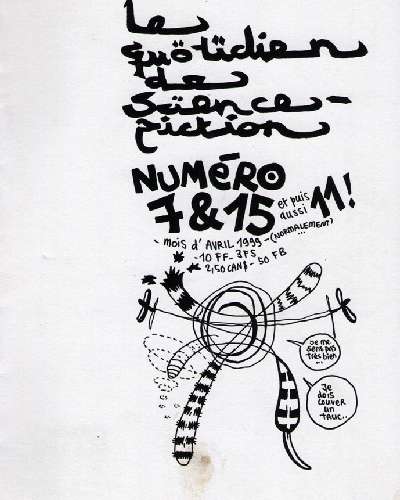 Le
quötidien
de
Science-
fiction
NUMÉRO
7 & 15 et puis
aussi 11!
- MOIS d'AVRIL 1999 - (NORMALEMENT)
...
- 10 FF - 3 FS
- 2,50 CAN$ - 50 FB
Je me
sens pas
très bien
...
Je
dois
couver
un
truc...